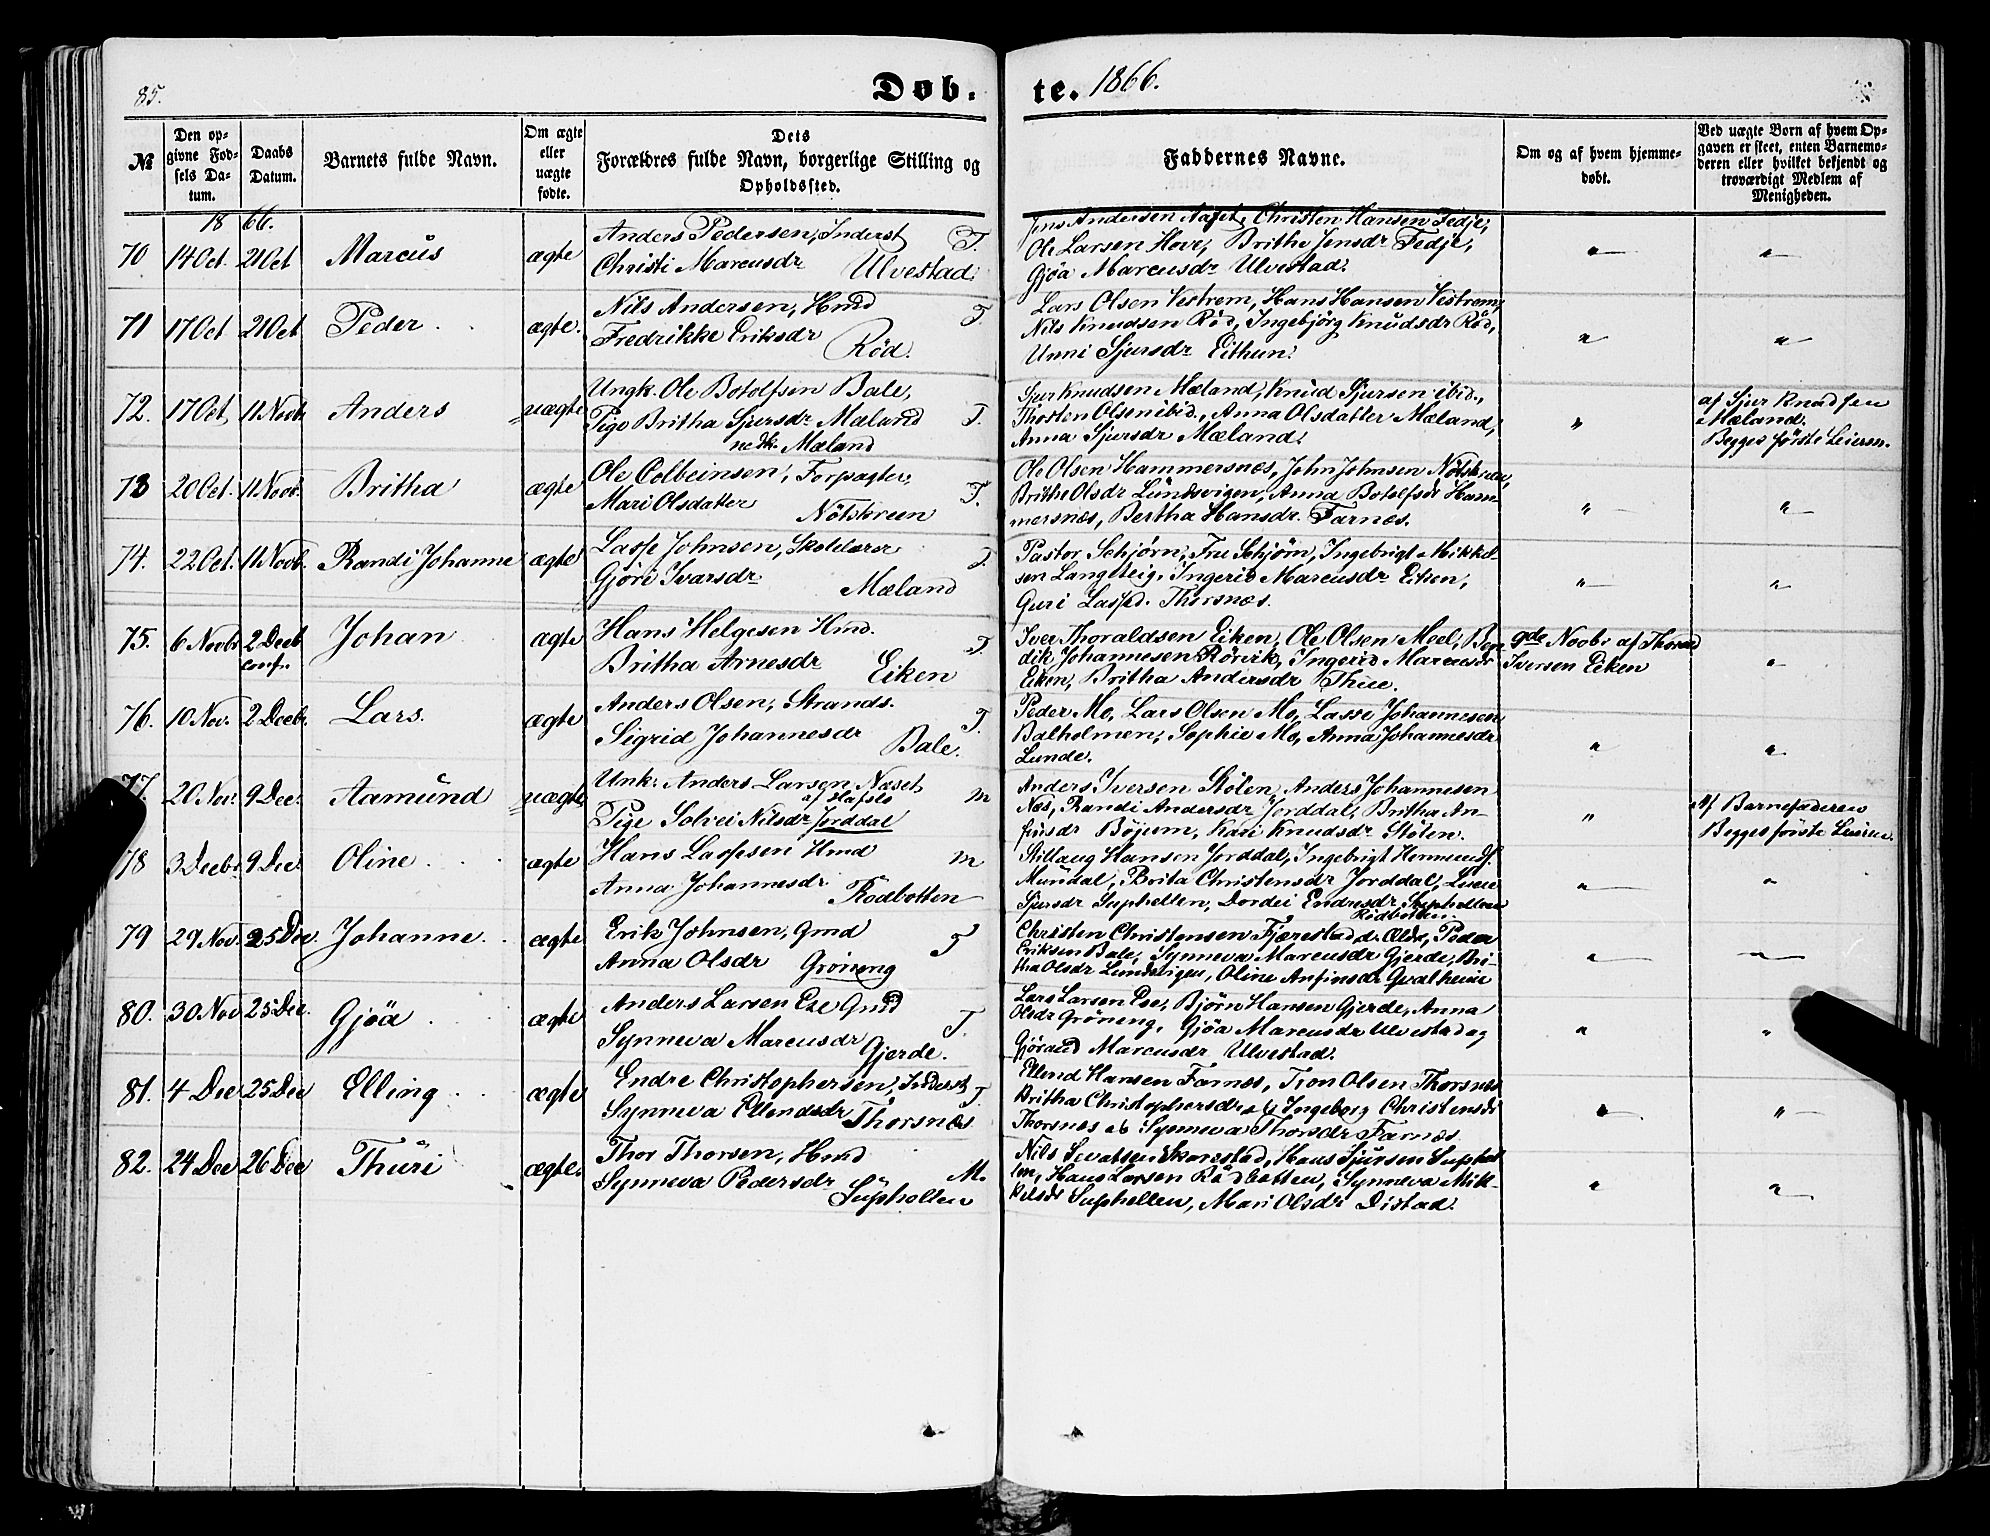 85.
Døb.
te. 1866.
№
Den opgivne Fødsels Datum.
Daabs Datum.
Barnets fulde Navn.
Om ægte eller uægte fødte.
Dets Forældres fulde Navn, borgerlige Stilling og Opholdssted.
Faddernes Navne.
Om og af hvem hjemmedøbt.
Ved uægte Børn af hvem Opgaven er skeet, enten Barnemoderen eller hvilket bekjendt og troværdigt Medlem af Menigheden.
1866.
70 14 Oct. 21 Oct Marcus ægte
Anders Pedersen, Inderst T.
Christi Marcusdr Ulvestad.
Jens Andersen Christen Hansen Fedje,
Ole Larsen Hove, Brithe Jensdr Fedje,
Gjøa Marcusdr Ulvestad.
" "
71 17 Oct 21 Oct Peder ægte.
Nils Andersen, Hmd T.
Fredrikke Eriksdr Rød.
Lars Olsen Vestrem, Hans Hansen Vestrem,
Nils Knudsen Rød, Ingebjørg Knudsdr Rød,
Unni Sjursdr Eithun.
" "
72. 17 Oct 11 Novb. Anders uægte
Ungk. Ole Botolfsen Bale,
Pige Britha Sjursdr Mæland T.
Mæland
Sjur Knudsen Mæland, Knud Sjursen ibid.,
Thosten Olsen ibid., Anna Olsdatter Mæland,
Anna Sjursdr Mæland.
"
af Sjur Knudsen
Mæland.
Begges første Leierm.
73 20 Oct. 11 Novb. Britha ægte
Ole Colbeinsen, Forpagter,
Mari Olsdatter Nøtskreen T.
Ole Olsen Hammersnæs, John Johnsen Nøtskreen,
Brithe Olsdr Lundevigen, Anna Botolfsdr Ham-
mersnæs, Bertha Hansdr. Farnæs.
" "
74. 22 Oct. 11 Novb. Randi Johanne ægte
Lasse Johnsen, Skolelærer T.
Gjøri Ivarsdr. Mæland
Pastor Schjørn, Fru Schjørn, Ingebrigt Mikkel-
sen Langeteig, Ingerid Marcusdr Eiken,
Guri Lassed. Thorsnæs.
" "
75. 6 Novbr 2 Decb. Johan ægte
Conf.
Hans Helgesen Hmd. T.
Britha Arnesdr Eiken
Iver Thoraldsen Eiken, Ole Olsen Meel, Ben-
dik Johannesen Rørvik, Ingerid Marcusdr
Eiken, Britha Andersdr Thue.
9de Novbr af Thorald
Iversen Eiken
"
76. 10 Nov. 2 Decbr. Lars. ægte
Anders Olsen, Strands. T.
Sigrid Johannesdr Bale.
Peder Mo, Lars Olsen Mo, Lasse Johannesen
Balholmen, Sophie Mo, Anna Johannesdr
Lunde.
" "
77. 20 Nov. 9 Dec. Aamund uægte
Unk. Anders Larsen Næset M
af Hafslo
Pige Solvei Nilsdr Jorddal
Anders Iversen Stølen, Anders Johannesen
Næs, Randi Andersdr Jorddal, Britha An-
finsdr Bøjum, Kari Knudsdr Stølen.
"
Af Barnefaderen
Begges første Leierm.
78 3 Decbr. 9 Dec. Oline ægte
Hans Lassesen Hmd M
Anna Johannesdr Rødbotten
Stillaug Hansen Jorddal, Ingebrigt Hermunds.
Mundal, Brita Christensdr Jorddal,
Sjursdr Suphellen, Dordei Endresdr Suphellen
Rødbotten.
" "
79 29 Nov. 25 Dec. Johanne ægte
Erik Johnsen, Gmd T
Anna Olsdr Grøneng
Christen Christensen Fjærestad d. Ældr, Peder
Eriksen Bale, Synneva Marcusdr Gjerde, Bri-
tha Olsdr Lundevigen, Oline Anfinsdr Qvalheim
" "
80. 30 Nov 25 Dec. Gjøa ægte
Anders Larsen Ese Gmd T.
Synneva Marcusdr Gjerde.
Lars Larsen Ese, Bjørn Hansen Gjerde, Anna
Olsdr Grøneng, Gjøa Marcusdr Ulvestad og
Gjøraud Marcusdr Ulvestad.
" "
81. 4 Dec 25 Dec Elling ægte
Endre Christophersen, Inderst T.
Synneva Ellendsdr Thorsnæs
Ellend Hansen Farnæs, Tron Olsen Thorsnæs
Britha Christophersdr ib, Ingeborg Christensdr
Thorsnæs ib Synneva Thorsdr Farnæs
" "
82. 24 Dec 26 Dec Thuri ægte.
Thor Thorsen, Hmd M.
Synneva Pedersdr Suphellen
Nils Sevatsen Skarestad, Hans Sjursen Suphel-
len, Hans Larsen Rødbotten, Synneva Mik-
kelsdr Suphellen, Mari Olsdr Distad.
" "